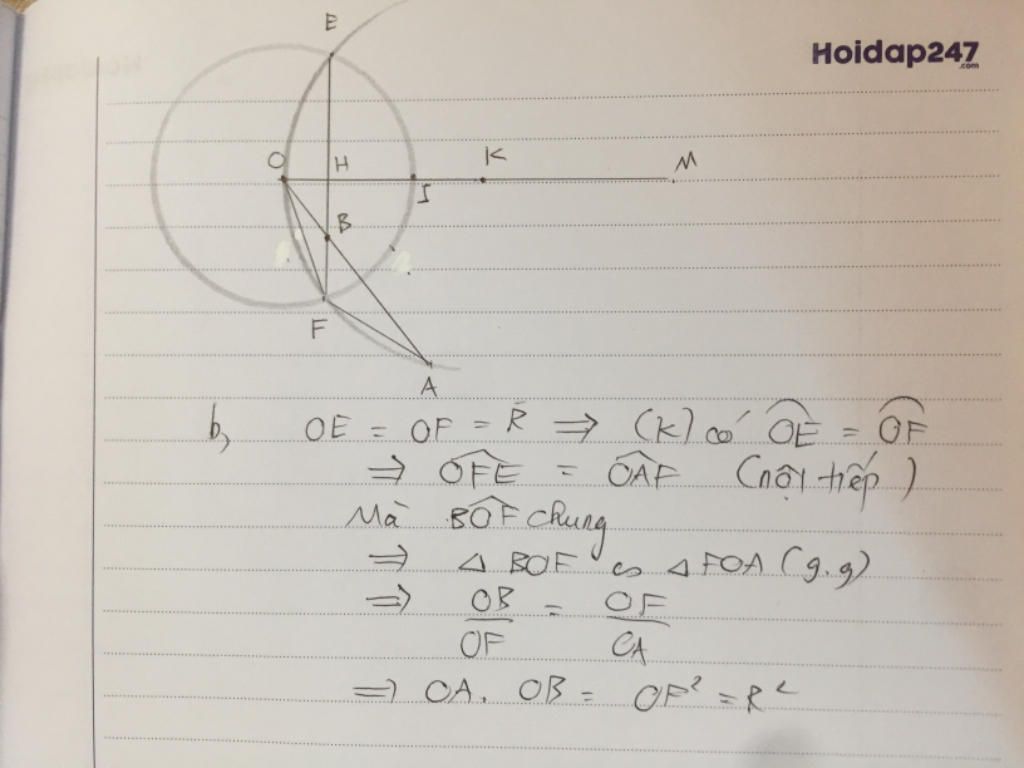 Hoidap247
.com
E
O H K M
I
B
F
A
b, OE = OF = R ⇒ (K) có OE = OF
⇒ OFE = OAF (nội tiếp)
Mà BOF chung
⇒ △ BOF ∽ △ FOA (g.g)
⇒ OB/OF = OF/OA
⇒ OA. OB = OF² = R²